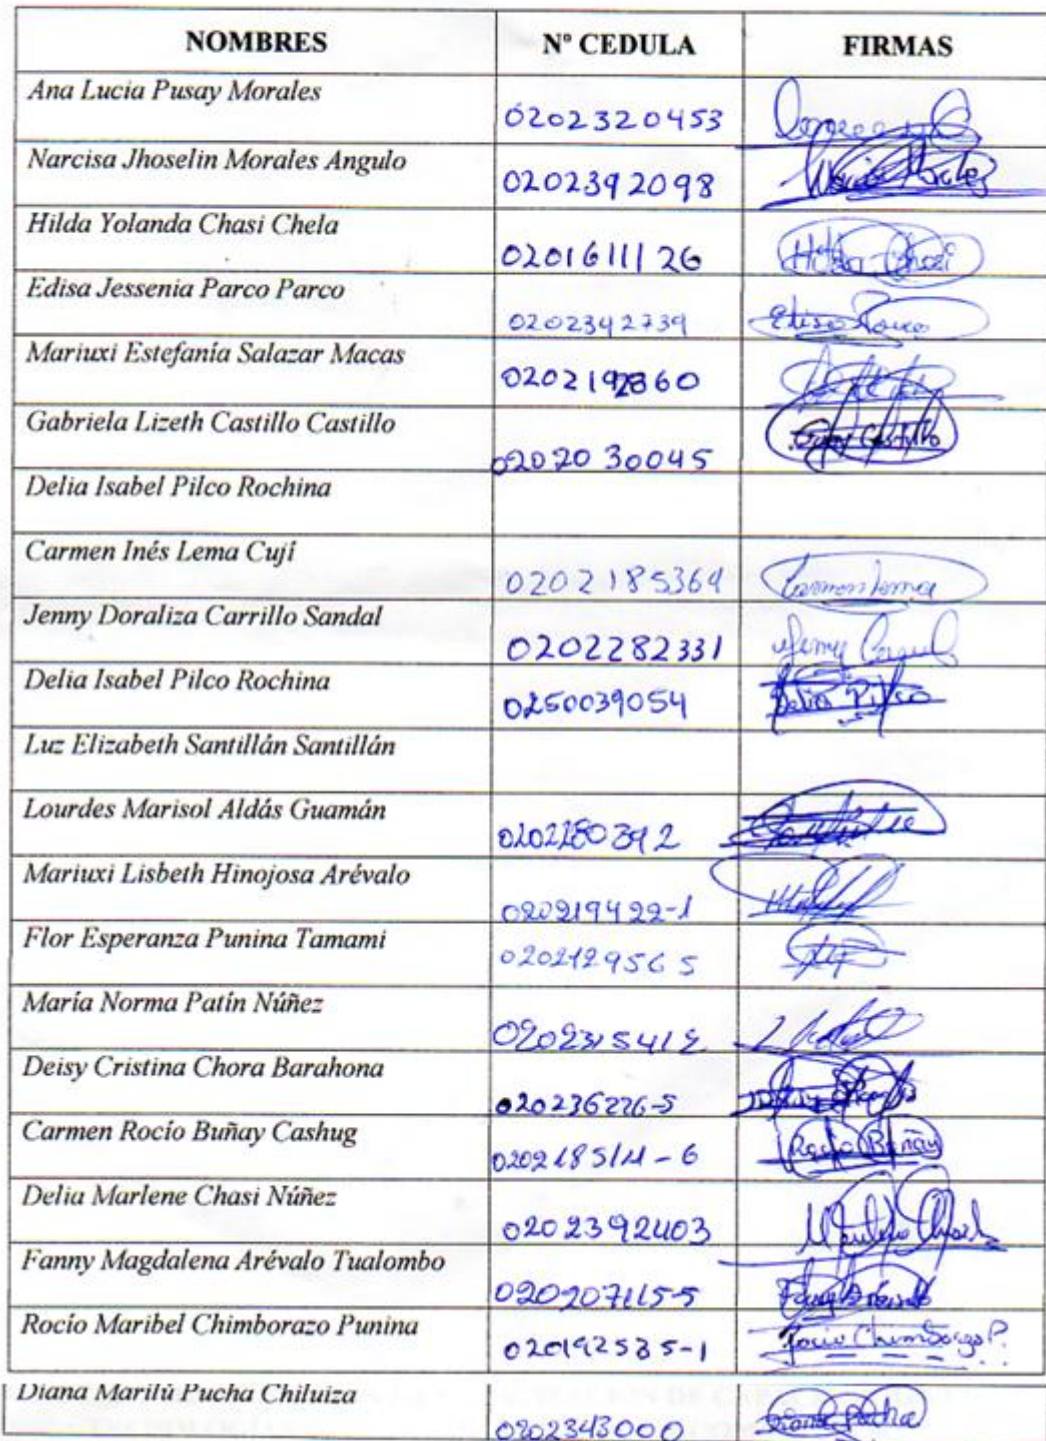 NOMBRES Nº CEDULA FIRMAS
Ana Lucia Pusay Morales 0202320453
Narcisa Jhoselin Morales Angulo 0202392098
Hilda Yolanda Chasi Chela 0201611126 Hilda Chasi
Edisa Jessenia Parco Parco 0202342739
Mariuxi Estefanía Salazar Macas
Gabriela Lizeth Castillo Castillo 0202030045 Castillo
Delia Isabel Pilco Rochina
Carmen Inés Lema Cují 0202185364 Carmen Lema
Jenny Doraliza Carrillo Sandal 0202282331
Delia Isabel Pilco Rochina 0250039054 Delia Pilco
Luz Elizabeth Santillán Santillán
Lourdes Marisol Aldás Guamán 0202280392
Mariuxi Lisbeth Hinojosa Arévalo 020219422-1
Flor Esperanza Punina Tamami 0202129565
María Norma Patín Núñez
Deisy Cristina Chora Barahona 020236226-5
Carmen Rocío Buñay Cashug Rocio Buñay
Delia Marlene Chasi Núñez 0202392403
Fanny Magdalena Arévalo Tualombo 020207115-5
Rocío Maribel Chimborazo Punina 020192535-1 Rocio Chimborazo P.
Diana Marilú Pucha Chiluiza 0202343000 Diana Pucha